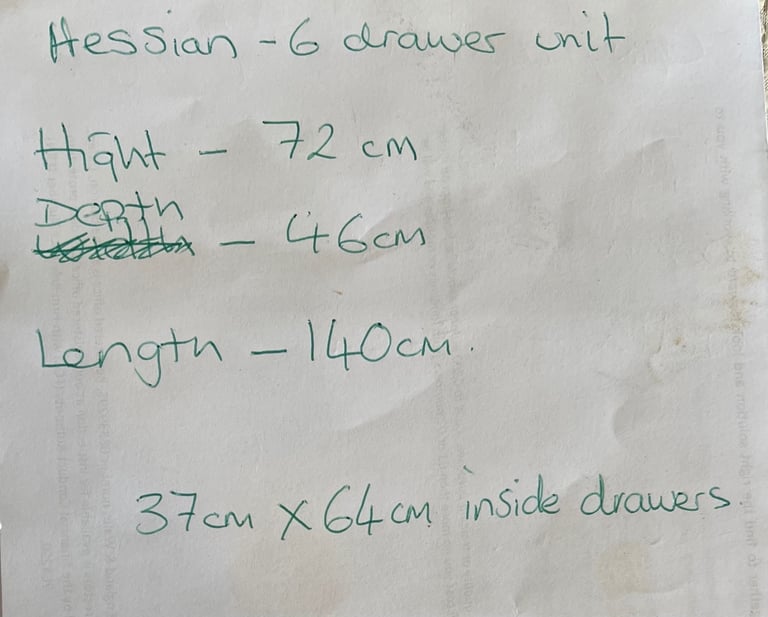 Hessian - 6 drawer unit
Hight - 72 cm
Depth
- 46cm
Length - 140cm.
37cm x 64cm inside drawers.